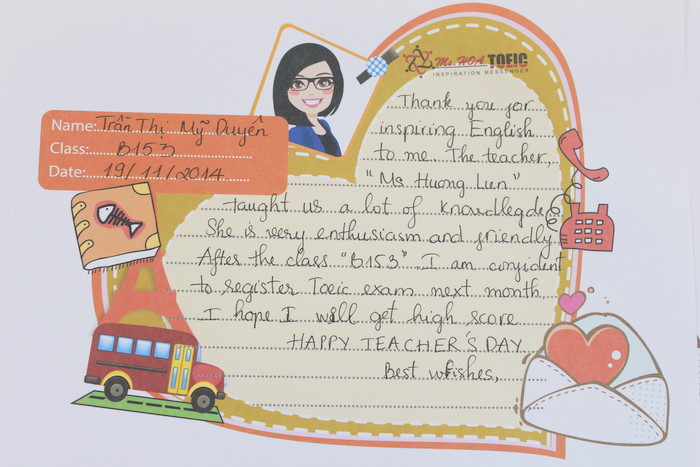 Ms. HOA TOEIC
INSPIRATION MESSENGER
Name: Trần Thị Mỹ Duyên
Class: B153
Date: 19/11/2014
Thank you for
inspiring English
to me. The teacher,
"Ms Huong Lien"
taught us a lot of knowdlegde.
She is very enthusiasm and friendly.
After the class "B153". I am confident
to register Toeic exam next month.
I hope I will get high score
HAPPY TEACHER'S DAY
Best whishes,